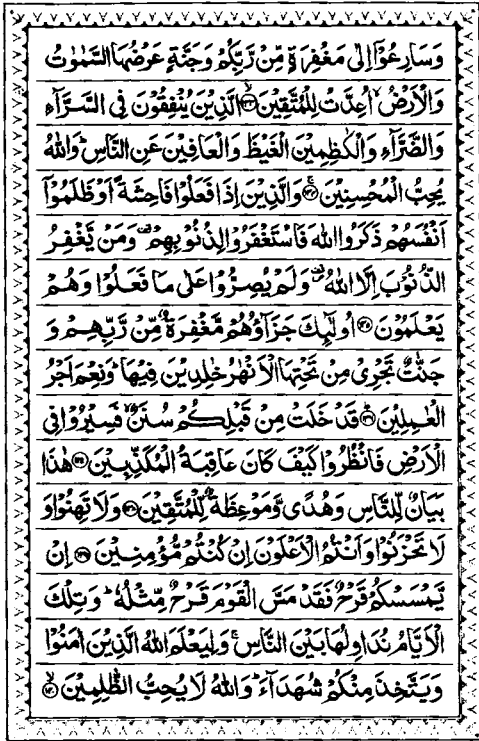 وَسَارِعُوْۤا اِلٰى مَغْفِرَةٍ مِّنْ رَّبِّكُمْ وَجَنَّةٍ عَرْضُهَا السَّمٰوٰتُ
وَالْاَرْضُ ۙ اُعِدَّتْ لِلْمُتَّقِيْنَ ۙ‏﴿۱۳۳﴾ الَّذِيْنَ يُنْفِقُوْنَ فِى السَّرَّآءِ
وَالضَّرَّآءِ وَالْكٰظِمِيْنَ الْغَيْظَ وَالْعَافِيْنَ عَنِ النَّاسِ ؕ وَاللّٰهُ
يُحِبُّ الْمُحْسِنِيْنَ ۚ‏﴿۱۳۴﴾ وَالَّذِيْنَ اِذَا فَعَلُوْا فَاحِشَةً اَوْ ظَلَمُوْۤا
اَنْفُسَهُمْ ذَكَرُوا اللّٰهَ فَاسْتَغْفَرُوْا لِذُنُوْبِهِمْ وَمَنْ يَّغْفِرُ
الذُّنُوْبَ اِلَّا اللّٰهُ وَلَمْ يُصِرُّوْا عَلٰى مَا فَعَلُوْا وَهُمْ
يَعْلَمُوْنَ ﴿۱۳۵﴾ اُولٰٓٮِٕكَ جَزَآؤُهُمْ مَّغْفِرَةٌ مِّنْ رَّبِّهِمْ وَ
جَنّٰتٌ تَجْرِىْ مِنْ تَحْتِهَا الْاَنْهٰرُ خٰلِدِيْنَ فِيْهَا ؕ وَنِعْمَ اَجْرُ
الْعٰمِلِيْنَ ؕ‏﴿۱۳۶﴾ قَدْ خَلَتْ مِنْ قَبْلِكُمْ سُنَنٌ ۙ فَسِيْرُوْا فِى
الْاَرْضِ فَانْظُرُوْا كَيْفَ كَانَ عَاقِبَةُ الْمُكَذِّبِيْنَ ﴿۱۳۷﴾ هٰذَا
بَيَانٌ لِّلنَّاسِ وَهُدًى وَّمَوْعِظَةٌ لِّلْمُتَّقِيْنَ ﴿۱۳۸﴾ وَلَا تَهِنُوْا وَ
لَا تَحْزَنُوْا وَاَنْتُمُ الْاَعْلَوْنَ اِنْ كُنْتُمْ مُّؤْمِنِيْنَ ﴿۱۳۹﴾ اِنْ
يَّمْسَسْكُمْ قَرْحٌ فَقَدْ مَسَّ الْقَوْمَ قَرْحٌ مِّثْلُهٗ ؕ وَتِلْكَ
الْاَيَّامُ نُدَاوِلُهَا بَيْنَ النَّاسِ ۚ وَلِيَعْلَمَ اللّٰهُ الَّذِيْنَ اٰمَنُوْا
وَيَتَّخِذَ مِنْكُمْ شُهَدَآءَ ؕ وَاللّٰهُ لَا يُحِبُّ الظّٰلِمِيْنَ ۙ‏﴿۱۴۰﴾